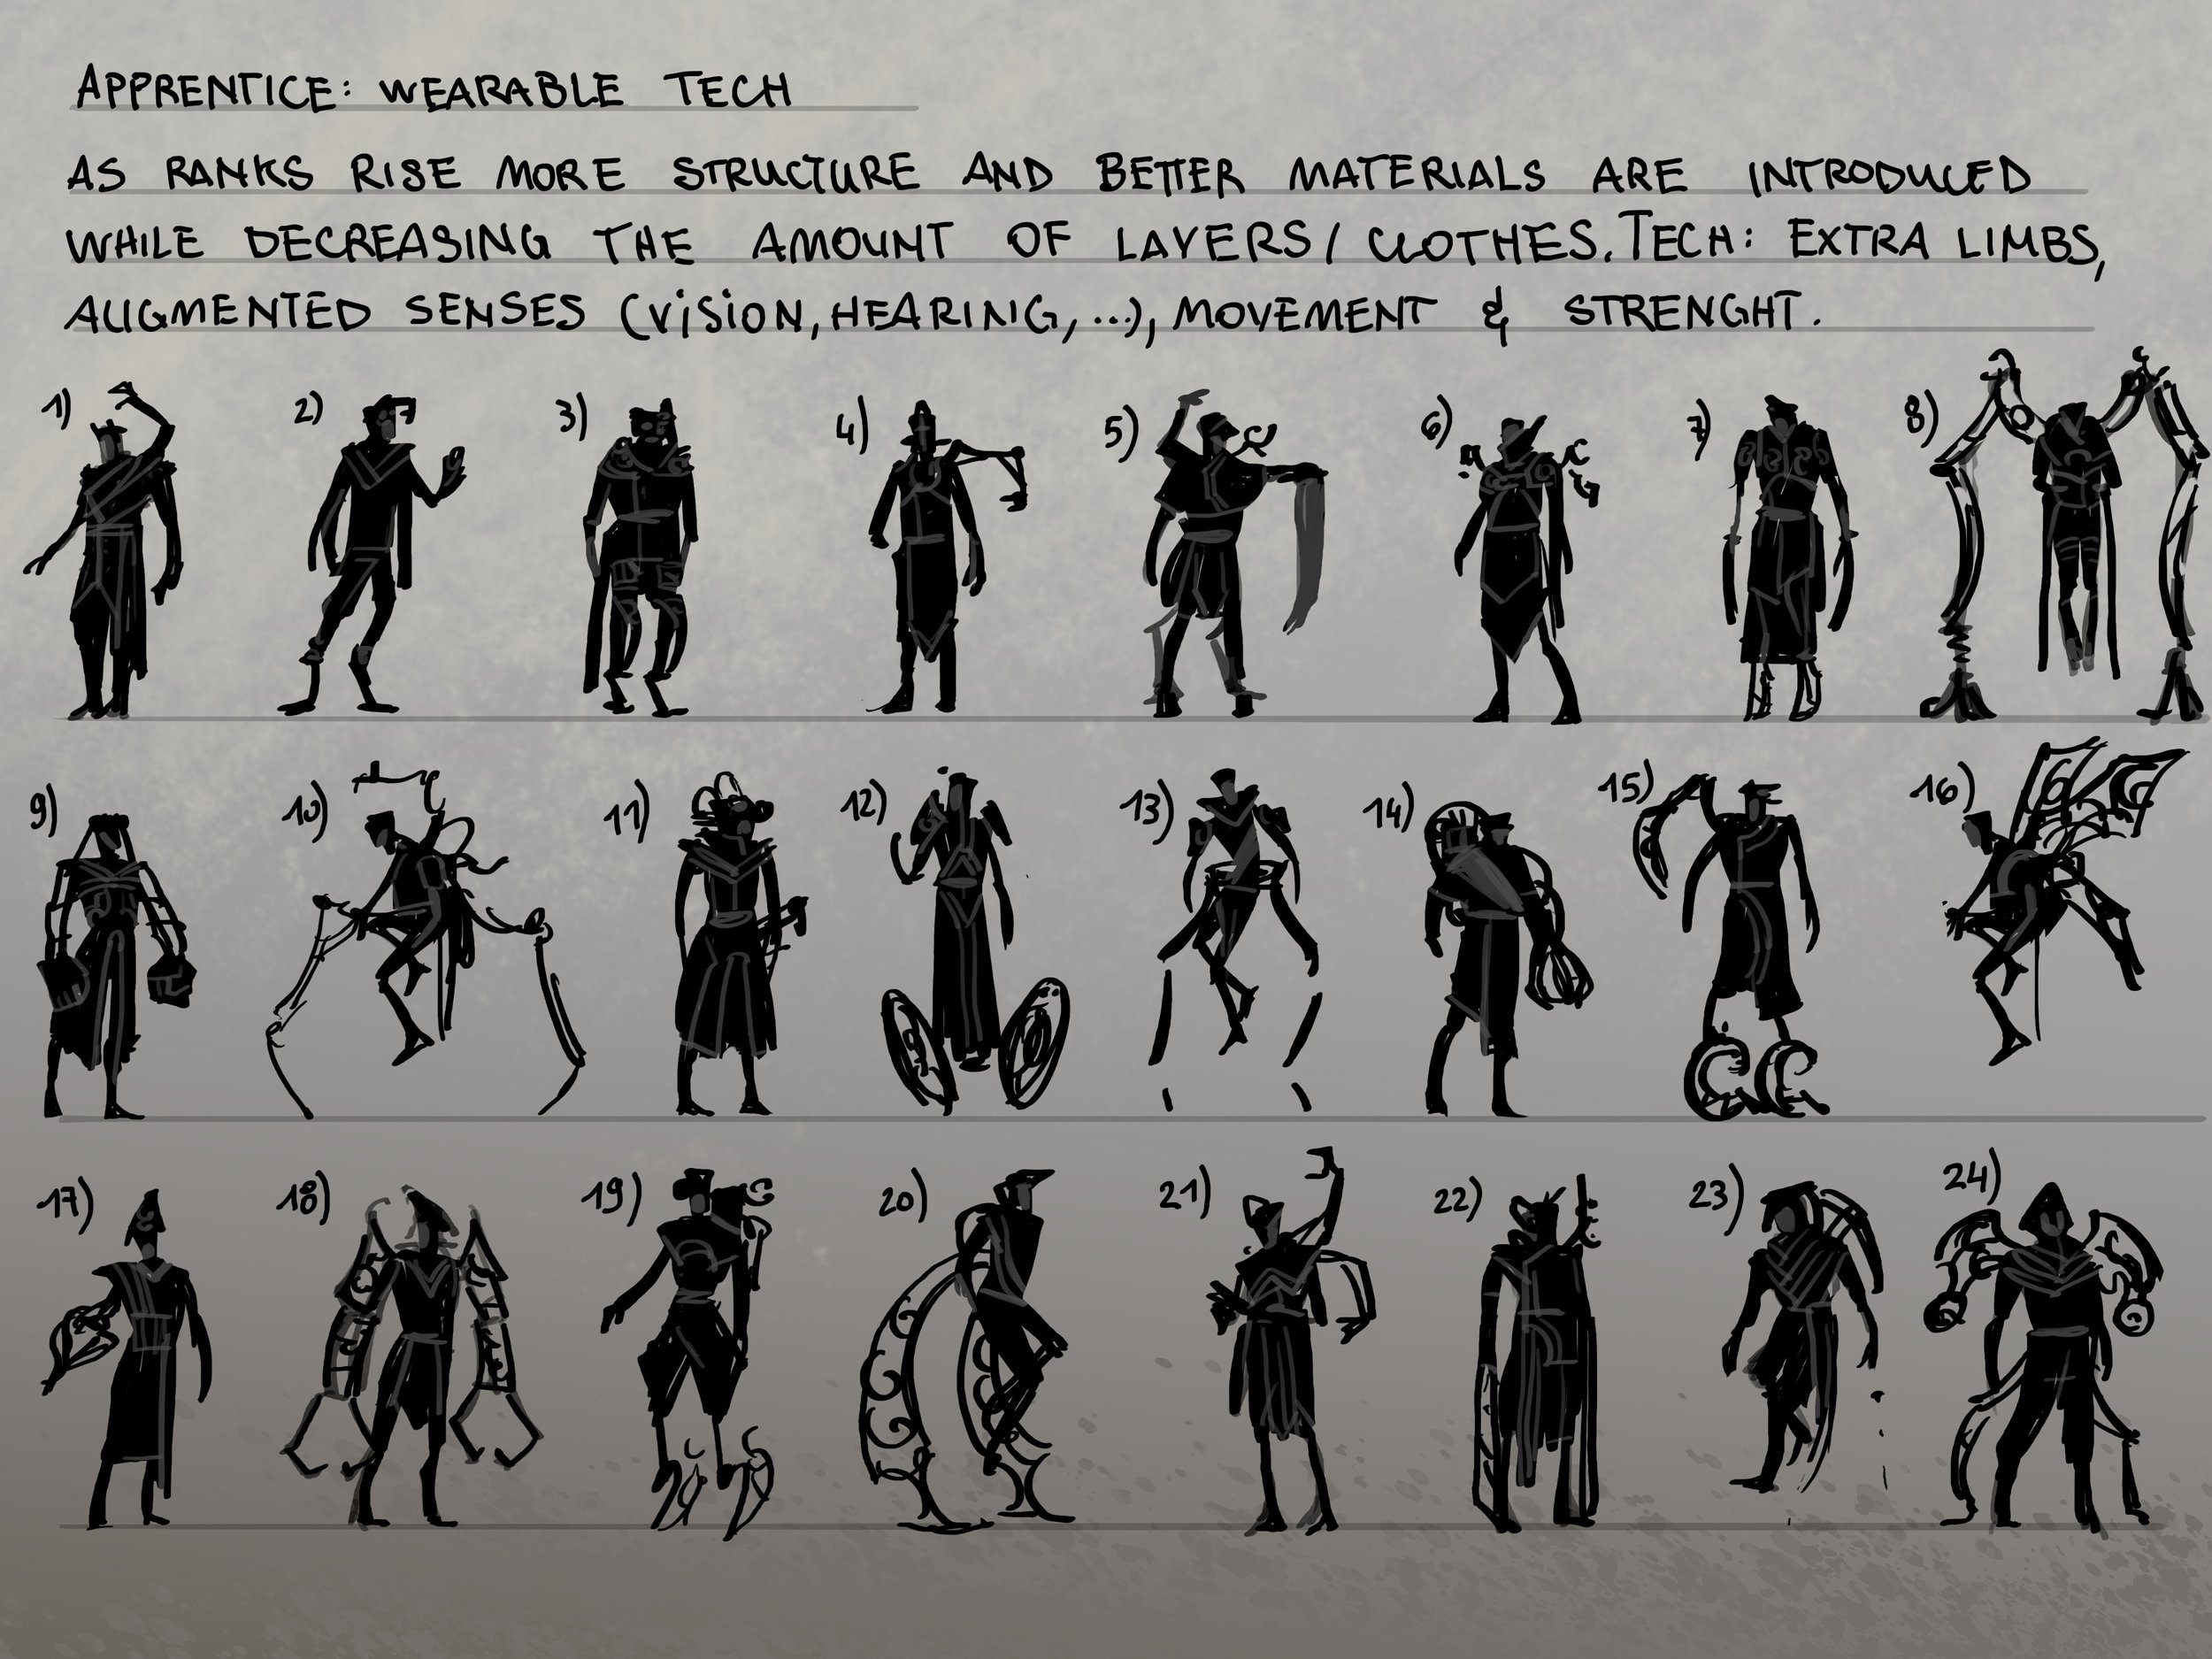 APPRENTICE: WEARABLE TECH
AS RANKS RISE MORE STRUCTURE AND BETTER MATERIALS ARE INTRODUCED
WHILE DECREASING THE AMOUNT OF LAYERS/CLOTHES. TECH: EXTRA LIMBS,
AUGMENTED SENSES (VISION, HEARING, ...), MOVEMENT & STRENGHT.
1) 2) 3) 4) 5) 6) 7) 8)
9) 10) 11) 12) 13) 14) 15) 16)
17) 18) 19) 20) 21) 22) 23) 24)